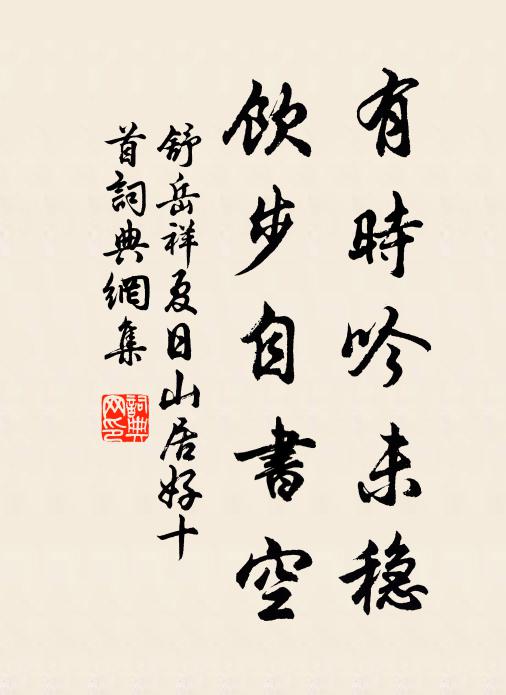 有時吟未穏
飲步自書空
舒岳祥夏日山居好十
首詞典網集
詞典网印